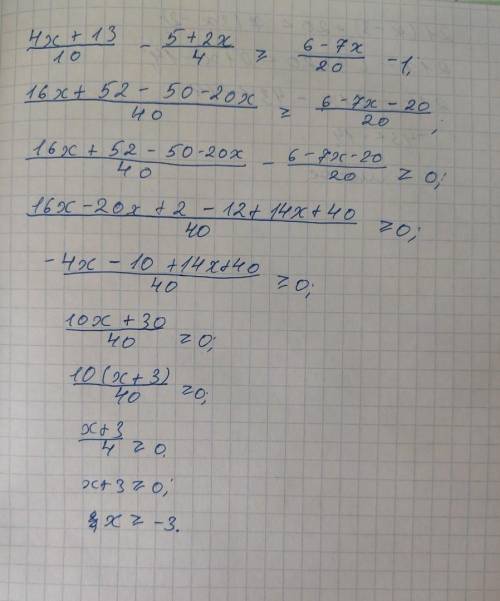 (4x + 13)/10 - (5 + 2x)/4 ≥ (6 - 7x)/20 - 1;
(16x + 52 - 50 - 20x)/40 ≥ (6 - 7x - 20)/20;
(16x + 52 - 50 - 20x)/40 - (6 - 7x - 20)/20 ≥ 0;
(16x - 20x + 2 - 12 + 14x + 40)/40 ≥ 0;
(-4x - 10 + 14x + 40)/40 ≥ 0;
(10x + 30)/40 ≥ 0;
(10(x + 3))/40 ≥ 0;
(x + 3)/4 ≥ 0.
x + 3 ≥ 0;
x ≥ -3.